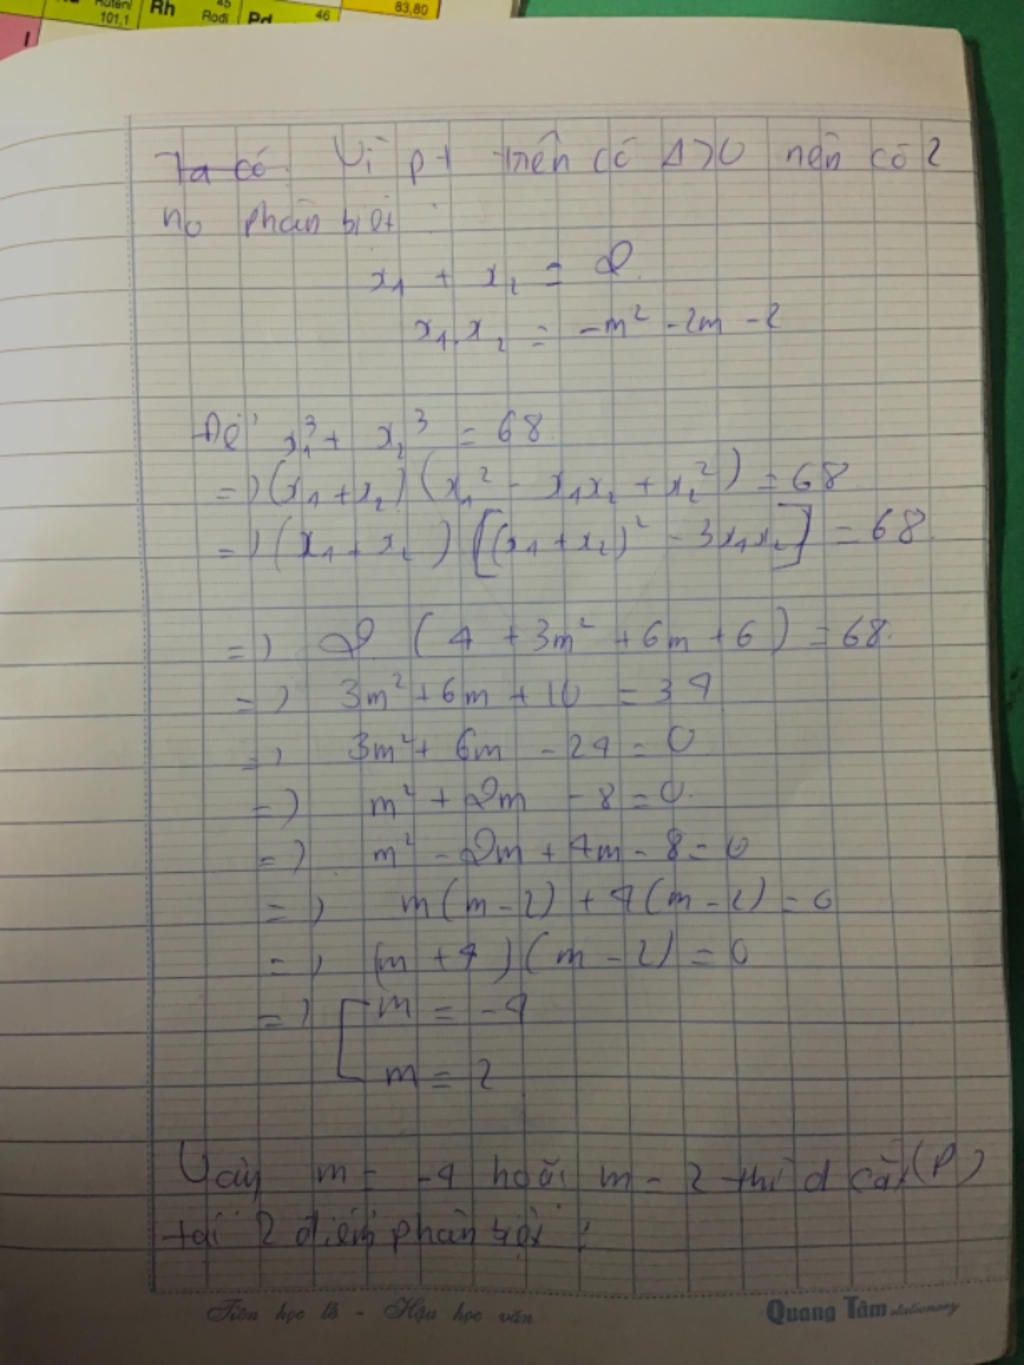 Ruteni
101,1
Rh
45
Rodi
Pd
46
83,80
I
Ta có Vì pt trên có Δ>0 nên có 2
no phân biệt :
x₁ + x₂ = 2
x₁.x₂ = -m² - 2m - 2
Để x₁³ + x₂³ = 68
=> (x₁ + x₂) (x₁² - x₁x₂ + x₂²) = 68
=> (x₁ + x₂) [(x₁ + x₂)² - 3x₁x₂] = 68
=> 2 (4 + 3m² + 6m + 6) = 68
=> 3m² + 6m + 10 = 34
=> 3m² + 6m - 24 = 0
=> m² + 2m - 8 = 0.
=> m² - 2m + 4m - 8 = 0
=> m(m - 2) + 4(m - 2) = 0
=> (m + 4)(m - 2) = 0
=> [ m = -4
m = 2
Vậy m = -4 hoặc m = 2 thì d cắt (P)
tại 2 điểm phân biệt
Tiên học lễ - Hậu học văn
Quang Tâm stationery